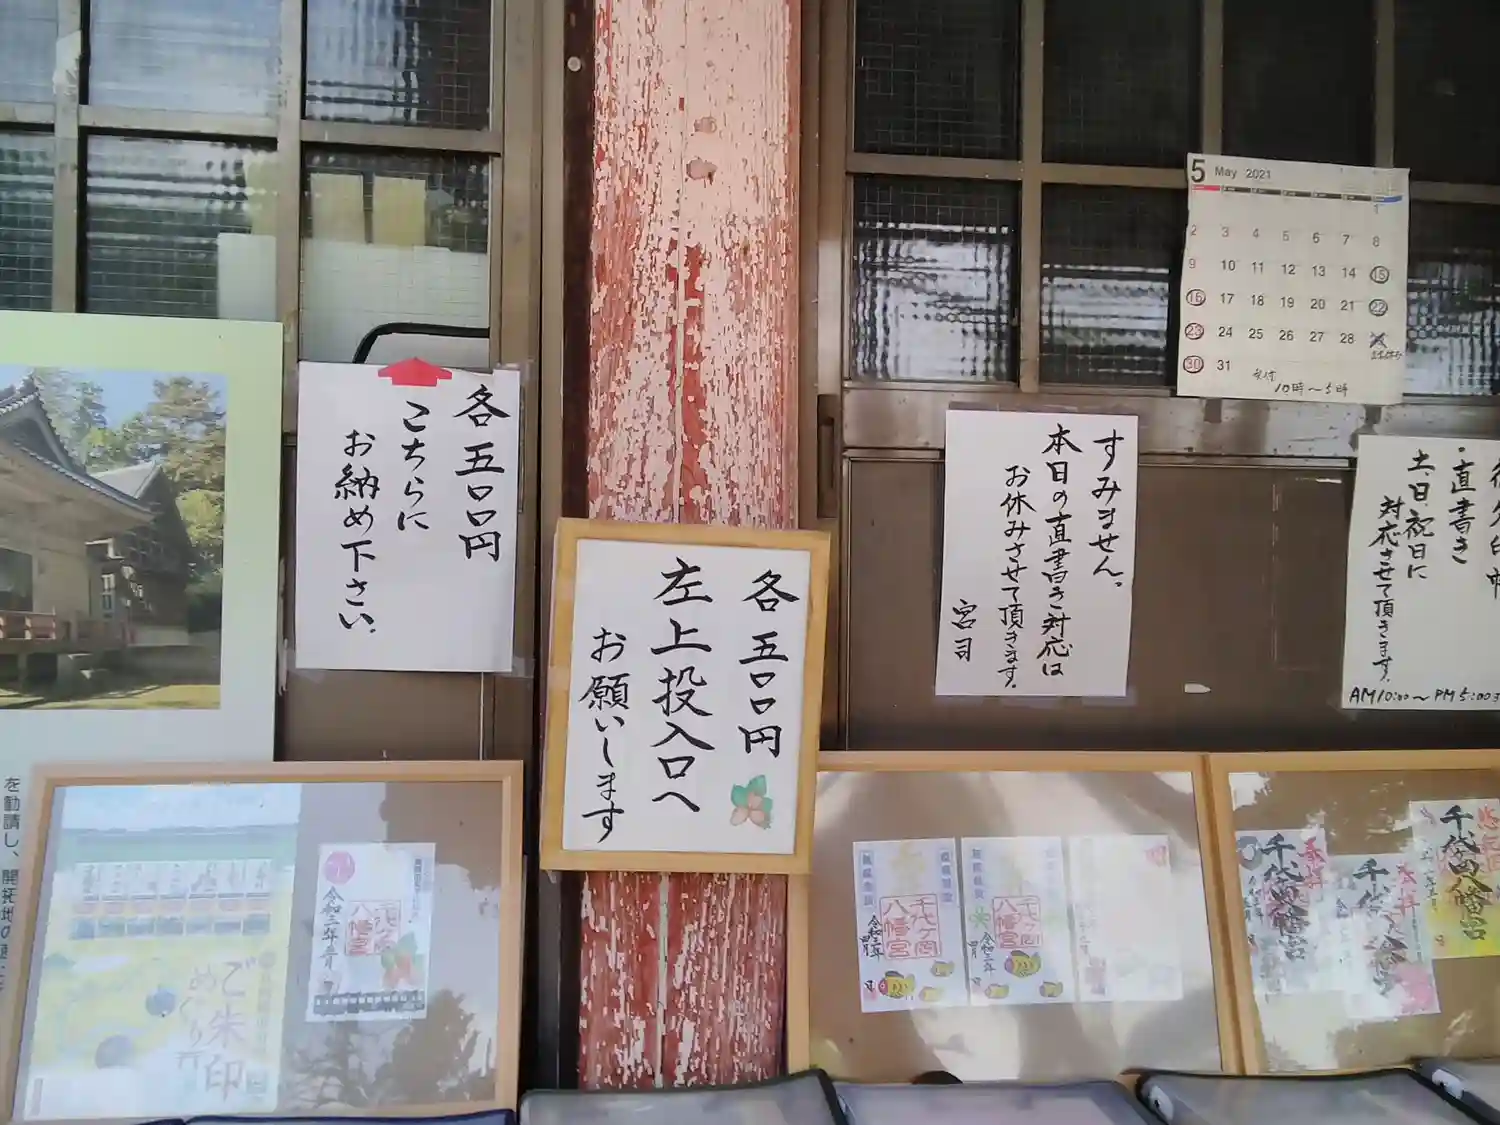 各五〇〇円
こちらに
お納め下さい。
各五〇〇円
左上投入口へ
お願いします
5 May 2021
1
2 3 4 5 6 7 8
9 10 11 12 13 14 15
16 17 18 19 20 21 22
23 24 25 26 27 28
30 31
受付
10時～5時
すみません。
本日の直書き対応は
お休みさせて頂きます。
宮司
・直書き
土、日、祝日に
対応させて頂きます。
AM10:00～PM5:00
を勧請し、開拓地の
ご朱印
めぐり
令和三年
八幡宮
千代ヶ岡
八幡宮
令和三年
四月
千代ヶ岡
八幡宮
令和三年
四月
奉拝
千代ヶ岡八幡宮
奉拝
千代
千代ヶ岡八幡宮